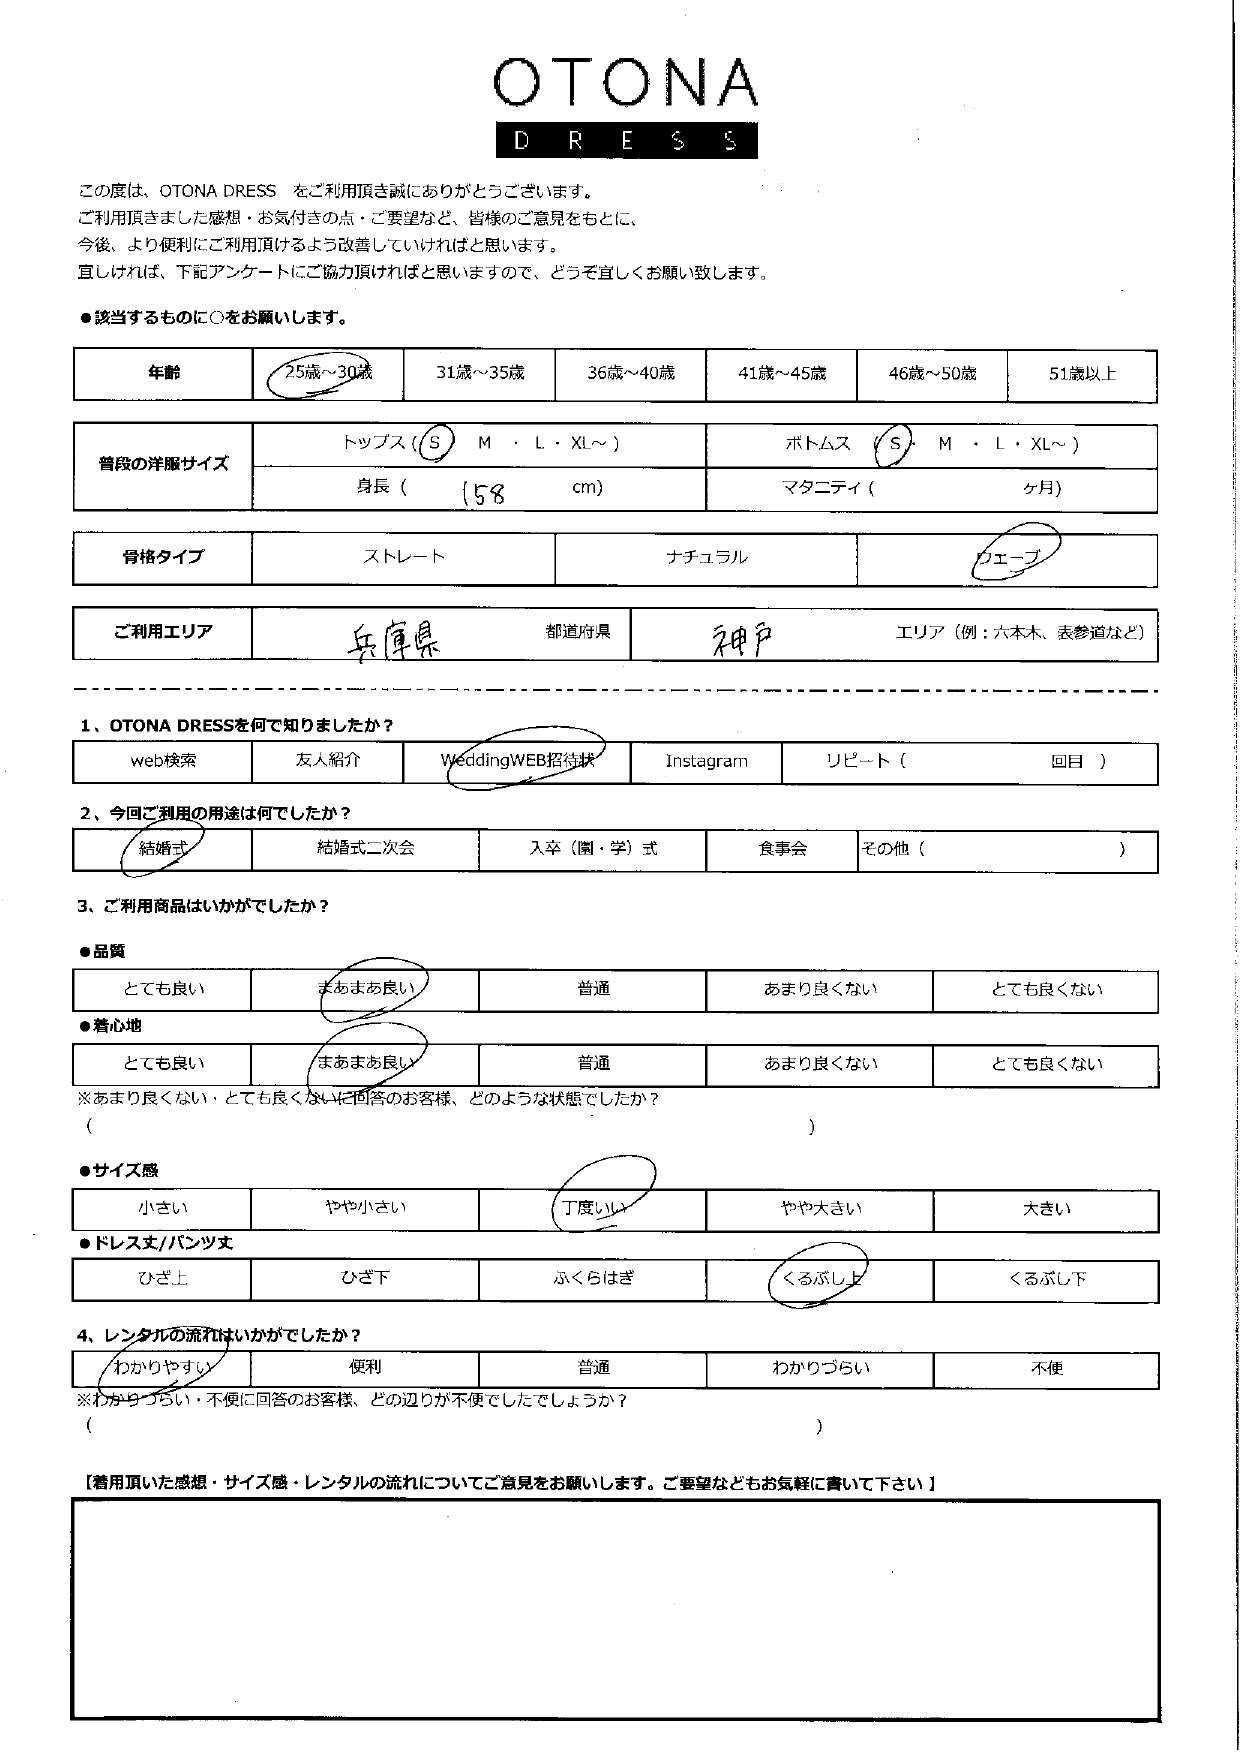 OTONA
DRESS
この度は、OTONA DRESS をご利用頂き誠にありがとうございます。
ご利用頂きました感想・お気付きの点・ご要望など、皆様のご意見をもとに、
今後、より便利にご利用頂けるよう改善していければと思います。
宜しければ、下記アンケートにご協力頂ければと思いますので、どうぞ宜しくお願い致します。
●該当するものに○をお願いします。
年齢 25歳～30歳 31歳～35歳 36歳～40歳 41歳～45歳 46歳～50歳 51歳以上
普段の洋服サイズ トップス ( S ・ M ・ L ・ XL～ ) ボトムス ( S ・ M ・ L ・ XL～ )
身長 ( 158 cm) マタニティ ( ヶ月)
骨格タイプ ストレート ナチュラル ウェーブ
ご利用エリア 兵庫県 都道府県 神戸 エリア（例：六本木、表参道など）
1、OTONA DRESSを何で知りましたか？
web検索 友人紹介 WeddingWEB招待状 Instagram リピート ( 回目 )
2、今回ご利用の用途は何でしたか？
結婚式 結婚式二次会 入卒（園・学）式 食事会 その他 ( )
3、ご利用商品はいかがでしたか？
●品質
とても良い まあまあ良い 普通 あまり良くない とても良くない
●着心地
とても良い まあまあ良い 普通 あまり良くない とても良くない
※あまり良くない・とても良くないに回答のお客様、どのような状態でしたか？
( )
●サイズ感
小さい やや小さい 丁度いい やや大きい 大きい
●ドレス丈/パンツ丈
ひざ上 ひざ下 ふくらはぎ くるぶし上 くるぶし下
4、レンタルの流れはいかがでしたか？
わかりやすい 便利 普通 わかりづらい 不便
※わかりづらい・不便に回答のお客様、どの辺りが不便でしたでしょうか？
( )
【着用頂いた感想・サイズ感・レンタルの流れについてご意見をお願いします。ご要望などもお気軽に書いて下さい 】